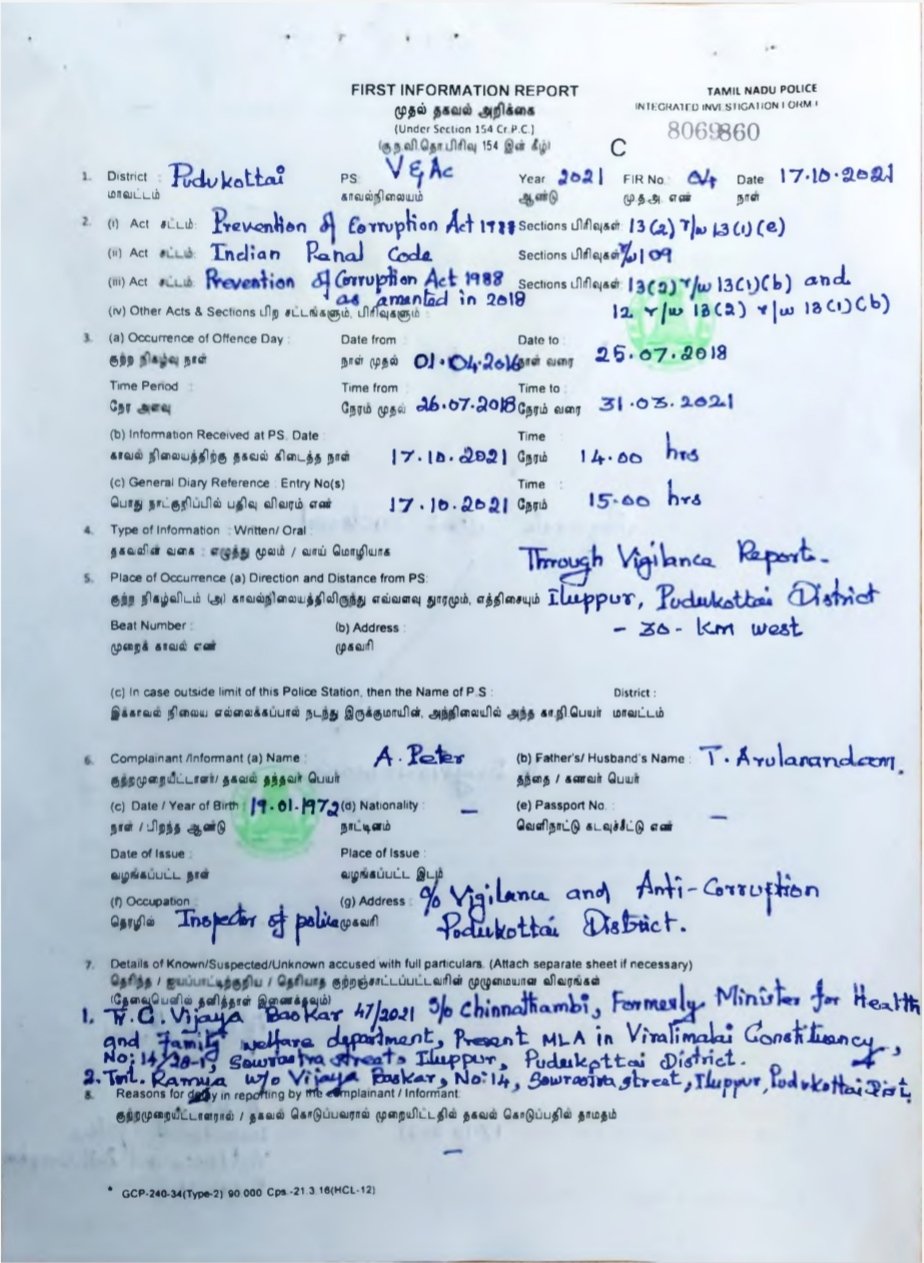 FIRST INFORMATION REPORT
TAMIL NADU POLICE
முதல் தகவல் அறிக்கை
INTEGRATED INVESTIGATION FORM I
(Under Section 154 Cr.P.C.)
8069860
(கு.ந.வி.தொ.பிரிவு 154 இன் கீழ்)
C
1. District : Pudukottai PS: V&AC Year 2021 FIR No: 04 Date 17.10.2021
மாவட்டம் காவல்நிலையம் ஆண்டு மு.த.அ. எண் நாள்
2. (i) Act சட்டம்: Prevention of Corruption Act 1988 Sections பிரிவுகள் 13(2) r/w 13(1)(e)
(ii) Act சட்டம்: Indian Panal Code Sections பிரிவுகள் 109
(iii) Act சட்டம்: Prevention of Corruption Act 1988 Sections பிரிவுகள் 13(2) r/w 13(1)(b) and
as amented in 2018
(iv) Other Acts & Sections பிற சட்டங்களும், பிரிவுகளும் : 12 r/w 13(2) r/w 13(1)(b)
3. (a) Occurrence of Offence Day : Date from : Date to :
குற்ற நிகழ்வு நாள் நாள் முதல் 01.04.2016 நாள் வரை 25.07.2018
Time Period : Time from : Time to :
நேர அளவு நேரம் முதல் 26.07.2018 நேரம் வரை 31.03.2021
(b) Information Received at PS. Date : Time :
காவல் நிலையத்திற்கு தகவல் கிடைத்த நாள் 17.10.2021 நேரம் 14.00 hrs
(c) General Diary Reference : Entry No(s) Time :
பொது நாட்குறிப்பில் பதிவு விவரம் எண் 17.10.2021 நேரம் 15.00 hrs
4. Type of Information : Written/ Oral :
தகவலின் வகை : எழுத்து மூலம் / வாய் மொழியாக Through Vigilance Report.
5. Place of Occurrence (a) Direction and Distance from PS:
குற்ற நிகழ்விடம் (அ) காவல்நிலையத்திலிருந்து எவ்வளவு தூரமும், எத்திசையும் Iluppur, Pudukottai District
Beat Number : (b) Address : - 30 - km west
முறைக் காவல் எண் முகவரி
(c) In case outside limit of this Police Station, then the Name of P.S : District :
இக்காவல் நிலைய எல்லைக்கப்பால் நடந்து இருக்குமாயின், அந்நிலையில் அந்த கா.நி.பெயர் மாவட்டம்
6. Complainant /Informant (a) Name : A. Peter (b) Father's/ Husband's Name : T. Arulanandam.
குற்றமுறையீட்டாளர்/ தகவல் தந்தவர் பெயர் தந்தை / கணவர் பெயர்
(c) Date / Year of Birth : 19.01.1972 (d) Nationality : – (e) Passport No. : –
நாள் / பிறந்த ஆண்டு நாட்டினம் வெளிநாட்டு கடவுச்சீட்டு எண்
Date of Issue : Place of Issue :
வழங்கப்பட்ட நாள் வழங்கப்பட்ட இடம்
(f) Occupation : (g) Address : O/o Vigilance and Anti-Corruption
தொழில் Inspector of police முகவரி Pudukottai District.
7. Details of Known/Suspected/Unknown accused with full particulars. (Attach separate sheet if necessary)
தெரிந்த / ஐயப்பாட்டிற்குரிய / தெரியாத குற்றஞ்சாட்டப்பட்டவரின் முழுமையான விவரங்கள்
(தேவையெனில் தனித்தாள் இணைக்கவும்)
1. Tr. C. Vijaya Baskar 47/2021 S/o Chinnathambi, Formerly Minister for Health
and Family welfare department, Present MLA in Viralimalai Constituency,
No: 14/28-1, Sowrastra street, Iluppur, Pudukottai District.
2. Tmt. Ramya W/o Vijaya Baskar, No: 14, Sowrastra street, Iluppur, Pudukottai Dist.
8. Reasons for delay in reporting by the complainant / Informant:
குற்றமுறையீட்டாளரால் / தகவல் கொடுப்பவரால் முறையிட்டதில் தகவல் கொடுப்பதில் தாமதம்
–
* GCP-240-34(Type-2) 90 000 Cps.-21.3.16(HCL-12)